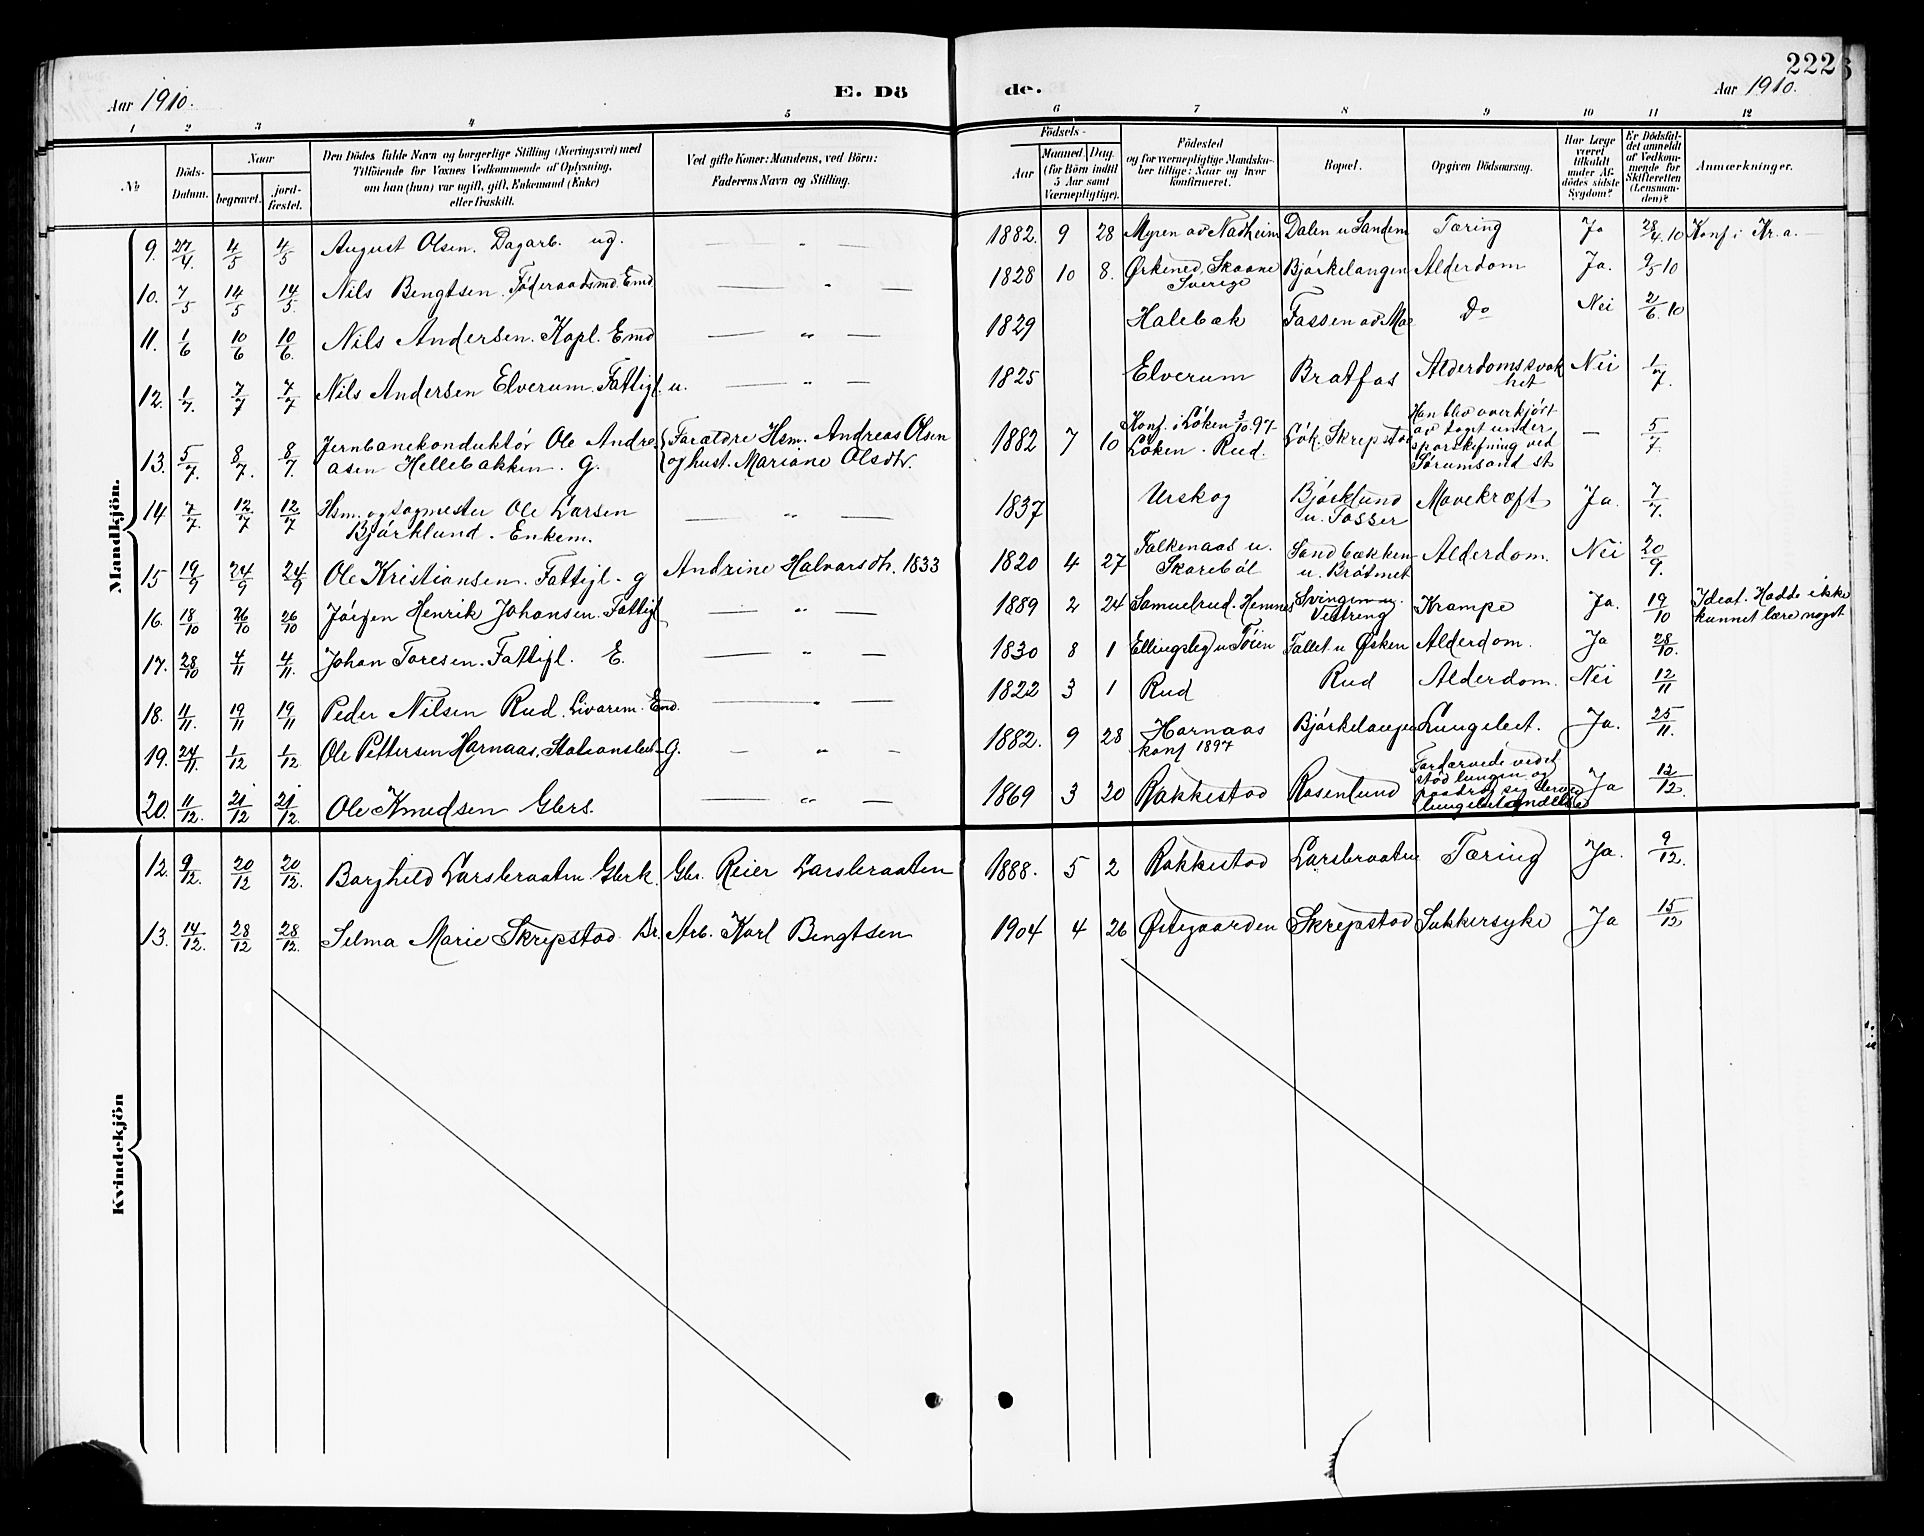 222
Aar 1910. E. Dö de. Aar 1910.
1 2 3 4 5 6 7 8 9 10 11 12
No Döds-Datum. Naar begravet. jord-fæstet. Den Dödes fulde Navn og borgerlige Stilling (Næringsvei) med Tilföiende for Voxnes Vedkommende af Oplysning, om han (hun) var ugift, gift, Enkemand (Enke) eller fraskilt. Ved gifte Koner: Mandens, ved Börn: Faderens Navn og Stilling. Födsels- Aar Maaned Dag. (for Börn indtil 5 Aar samt Værnepligtige). Födested og for værnepligtige Mandskaber tillige: Naar og hvor konfirmeret. Bopæl. Opgiven Dödsaarsag. Har Læge været tilkaldt under Afdödes sidste Sygdom? Er Dödsfaldet anmeldt af Vedkommende for Skifteretten (Lensmanden)? Anmærkninger.
Mandkjön.
9. 27/4. 4/5 4/5 August Olsen. Dagarb. ug. — „ — 1882. 9 28 Myren av Nadheim Dalen u Sandem Tæring Ja 28/4.10 Konf i Kr.a.
10. 7/5 14/5 14/5 Nils Bengtsen. Föderaadsmd. Emd — „ — 1828 10 8. Ørkened, Skaane Sverige Bjørkelangen Alderdom Ja. 9/5 10
11. 1/6 10/6 10/6. Nils Andersen. Kapl. Emd — „ — 1829 Halebæk Fassen av Mo Do Nei 2/6.10
12. 1/7. 7/7 7/7 Nils Andersen Elverum. Fattigl. u. — „ — 1825 Elverum Bratfos Alderdomssvakhet Nei 1/7.
13. 5/7 8/7. 8/7 Jernbanekonduktør Ole Andreasen Hellebakken. G. Forældre Hsm. Andreas Olsen og hust. Mariane Olsdtr. 1882 7 10 Konf. i Løken 3/10.97 Løken. Rud. Løk. Skrepstad Han blev overkjørt av toget under sporskifning ved Sørumsand st — 5/7.
14 7/7. 12/7 12/7 Hsm. og sagmester Ole Larsen Bjørklund. Enkem. — „ — 1837 Urskog Bjørklund u. Tosser Mavekræft Ja. 7/7.
15 19/9 24/9 24/9 Ole Kristiansen. Fattigl. g Andrine Halvorsdtr. 1833 1820 4 27 Falkenaas u. Skarebøl Sandbækken u. Bråtnet Alderdom. Nei 20/9.
16. 18/10 26/10 26/10 Jørgen Henrik Johansen. Fattigl — „ — 1889 2 24 Samuelrud. Hemnes Svingen u. Vestring Krampe Ja. 19/10 Idiot. Hadde ikke kunnet lære noget
17. 28/10 4/11 4/11. Johan Toresen. Fattigl. E. — „ — 1830 8 1 Ellingsteg u Tøien Fallet u Øsken Alderdom. Ja 28/10.
18. 11/11. 19/11 19/11 Peder Nilsen Rud. Livørem. Emd. — „ — 1822 3 1 Rud Rud Alderdom. Nei 12/11
19. 24/11. 1/12 1/12 Ole Pettersen Harnaas. Stationsbetj. G. — „ — 1882. 9 28 Harnaas konf 1897 Bjørkelangen Lungebet. Ja. 25/11.
20. 11/12. 21/12 21/12. Ole Knudsen Gbrs. — „ — 1869 3 20 Rakkestad Rosenlund Fordærvede ved et stød lungen og paadrog sig derved lungebetændelse Ja 12/12.
Kvindekjön
12. 9/12. 20/12 20/12. Borghild Larsbraaten Gbrk. Gbr. Reier Larsbraaten 1888. 5 2 Rakkestad Larsbraaten Tæring Ja. 9/12.
13. 14/12. 28/12 28/12. Selma Marie Skrepstad Br. Arb. Karl Bengtsen 1904 4 26 Østegaarden Skrepstad Sukkersyke Ja 15/12